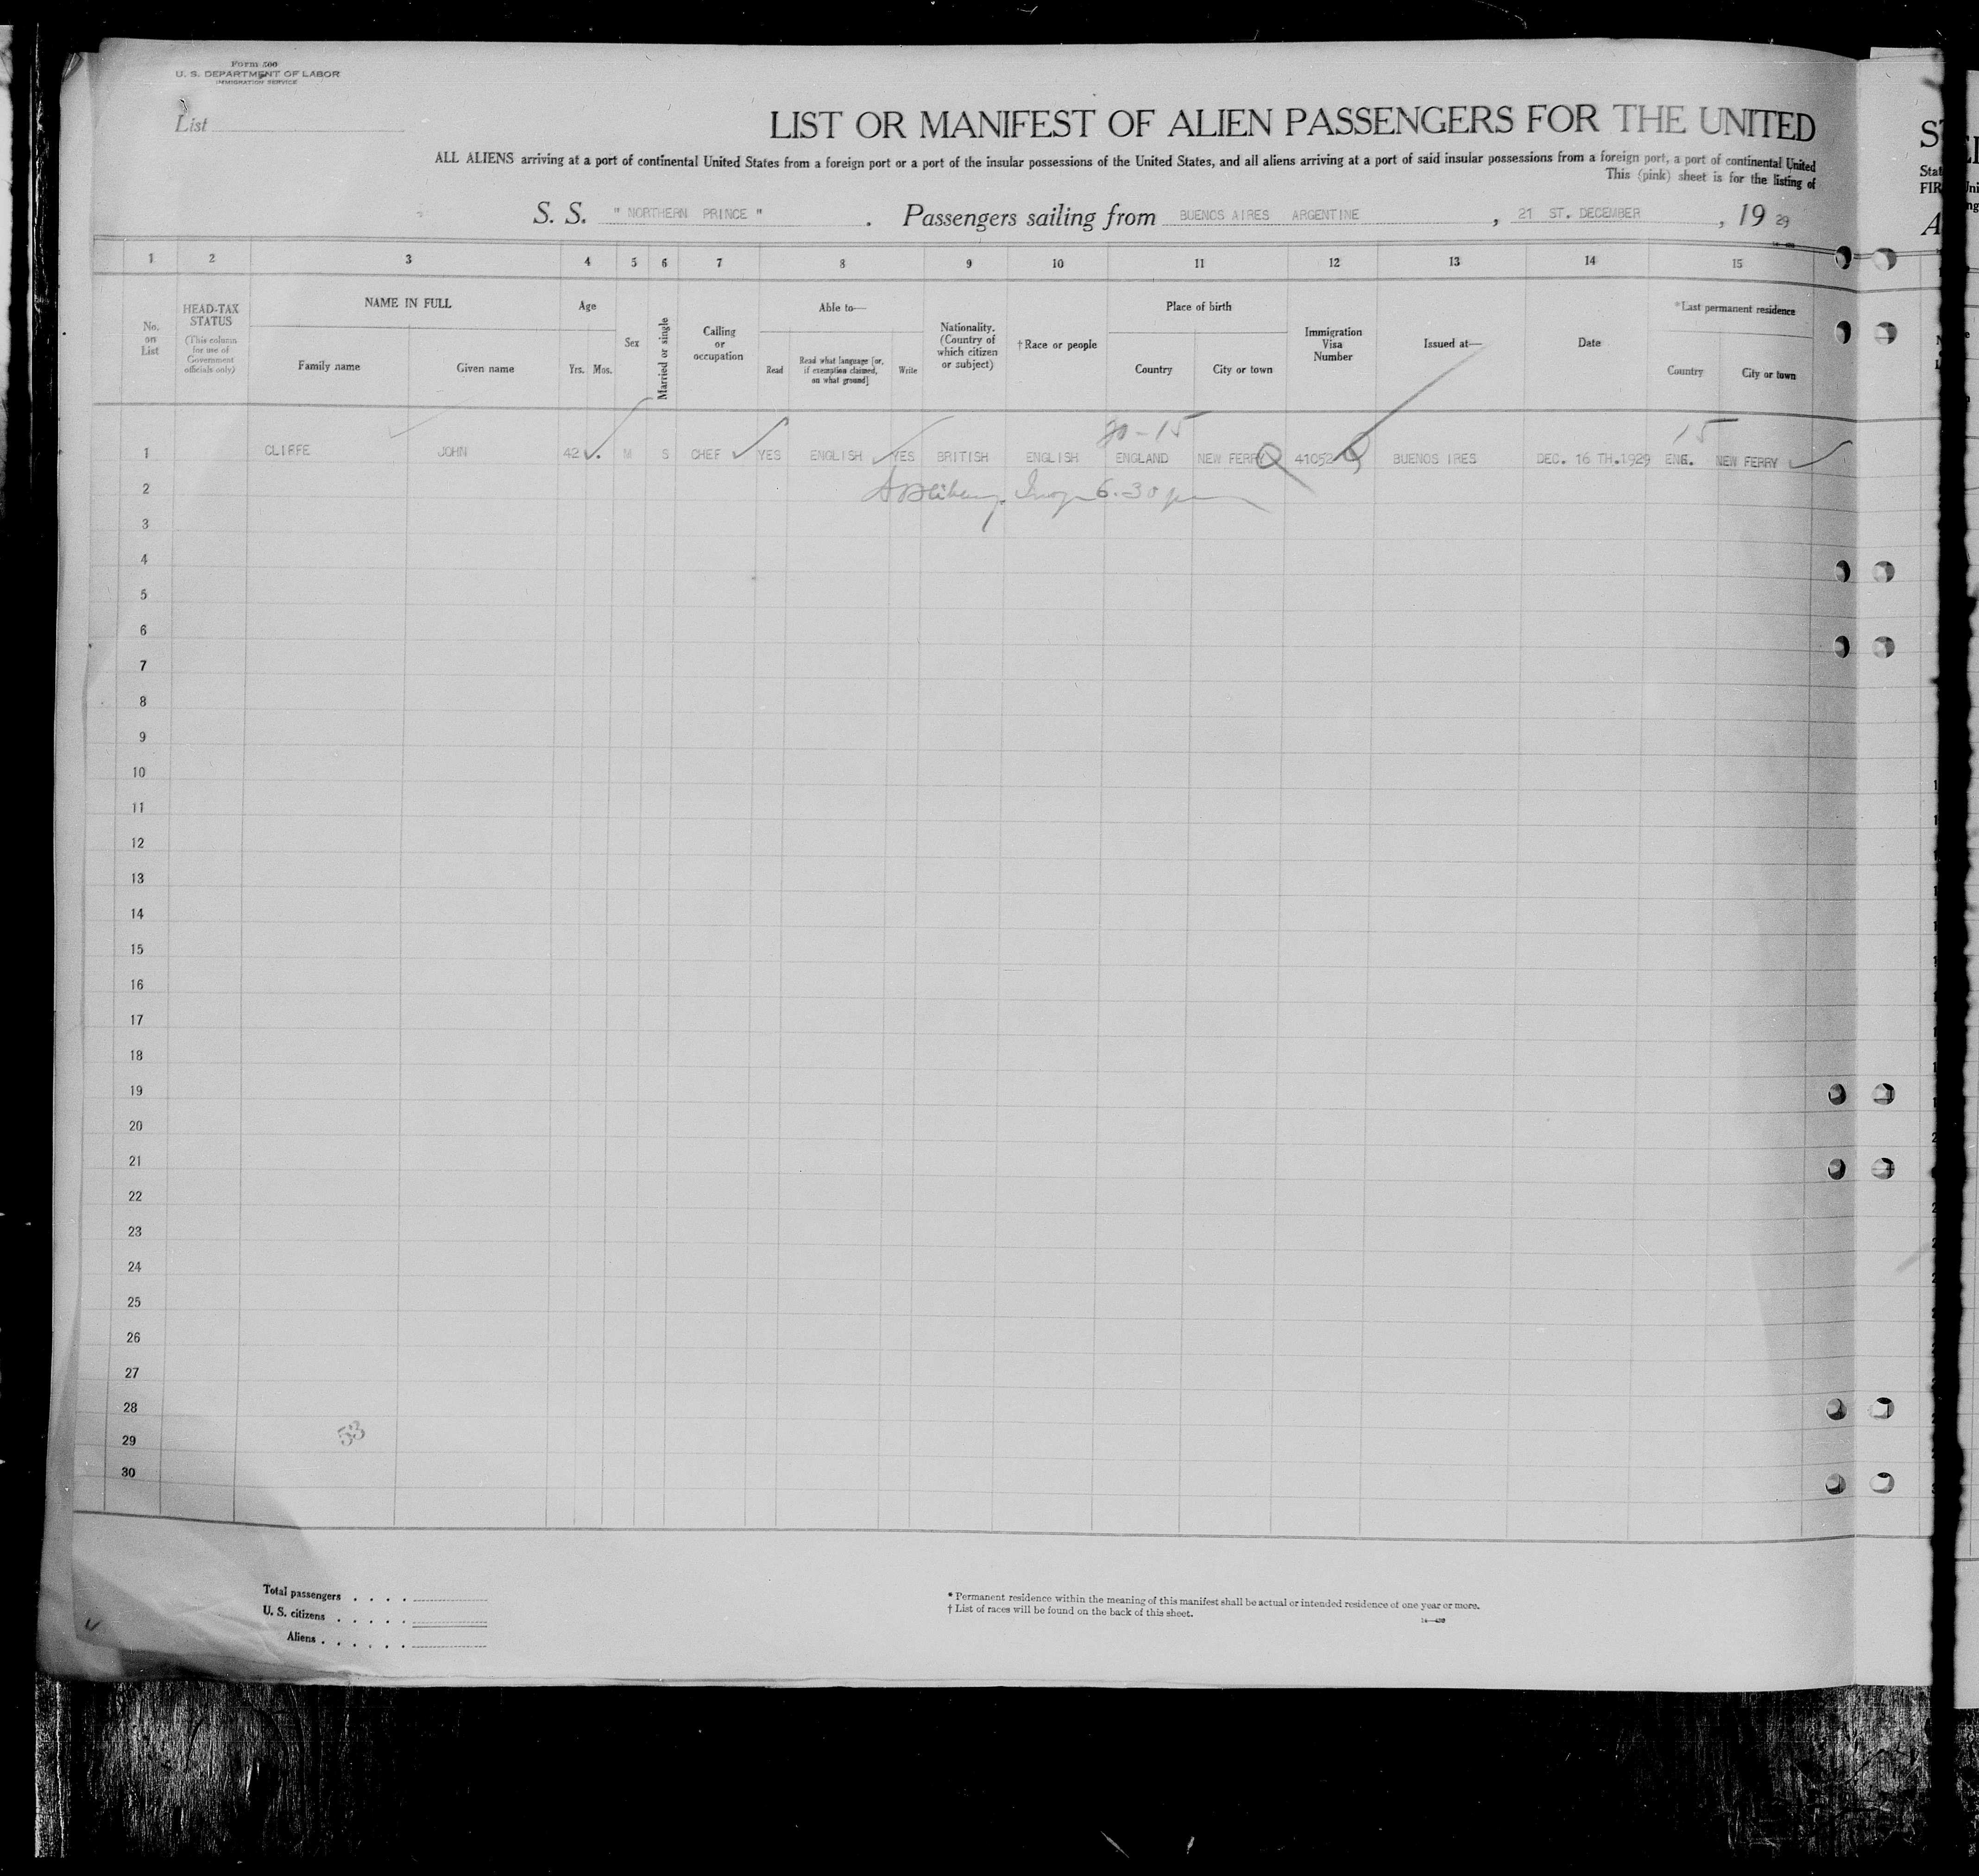 Form 500
U. S. DEPARTMENT OF LABOR
IMMIGRATION SERVICE
List
LIST OR MANIFEST OF ALIEN PASSENGERS FOR THE UNITED
ALL ALIENS arriving at a port of continental United States from a foreign port or a port of the insular possessions of the United States, and all aliens arriving at a port of said insular possessions from a foreign port, a port of continental United
This (pink) sheet is for the listing of
S. S. " NORTHERN PRINCE ". Passengers sailing from BUENOS AIRES ARGENTINE, 21 ST. DECEMBER, 19 29
1 2 3 4 5 6 7 8 9 10 11 12 13 14 15
No. on List
HEAD-TAX STATUS (This column for use of Government officials only)
NAME IN FULL
Family name Given name
Age
Yrs. Mos.
Sex
Married or single
Calling or occupation
Able to—
Read
Read what language [or, if exemption claimed, on what ground]
Write
Nationality. (Country of which citizen or subject)
†Race or people
Place of birth
Country City or town
Immigration Visa Number
Issued at—
Date
*Last permanent residence
Country City or town
15
1 CLIFFE JOHN 42 M S CHEF YES ENGLISH YES BRITISH ENGLISH ENGLAND NEW FERRY 41052 BUENOS IRES DEC. 16 TH.1929 ENG. NEW FERRY
2 6.30
3
4
5
6
7
8
9
10
11
12
13
14
15
16
17
18
19
20
21
22
23
24
25
26
27
28
53
29
30
Total passengers . . . .
U. S. citizens . . . . .
Aliens . . . . . .
* Permanent residence within the meaning of this manifest shall be actual or intended residence of one year or more.
† List of races will be found on the back of this sheet.